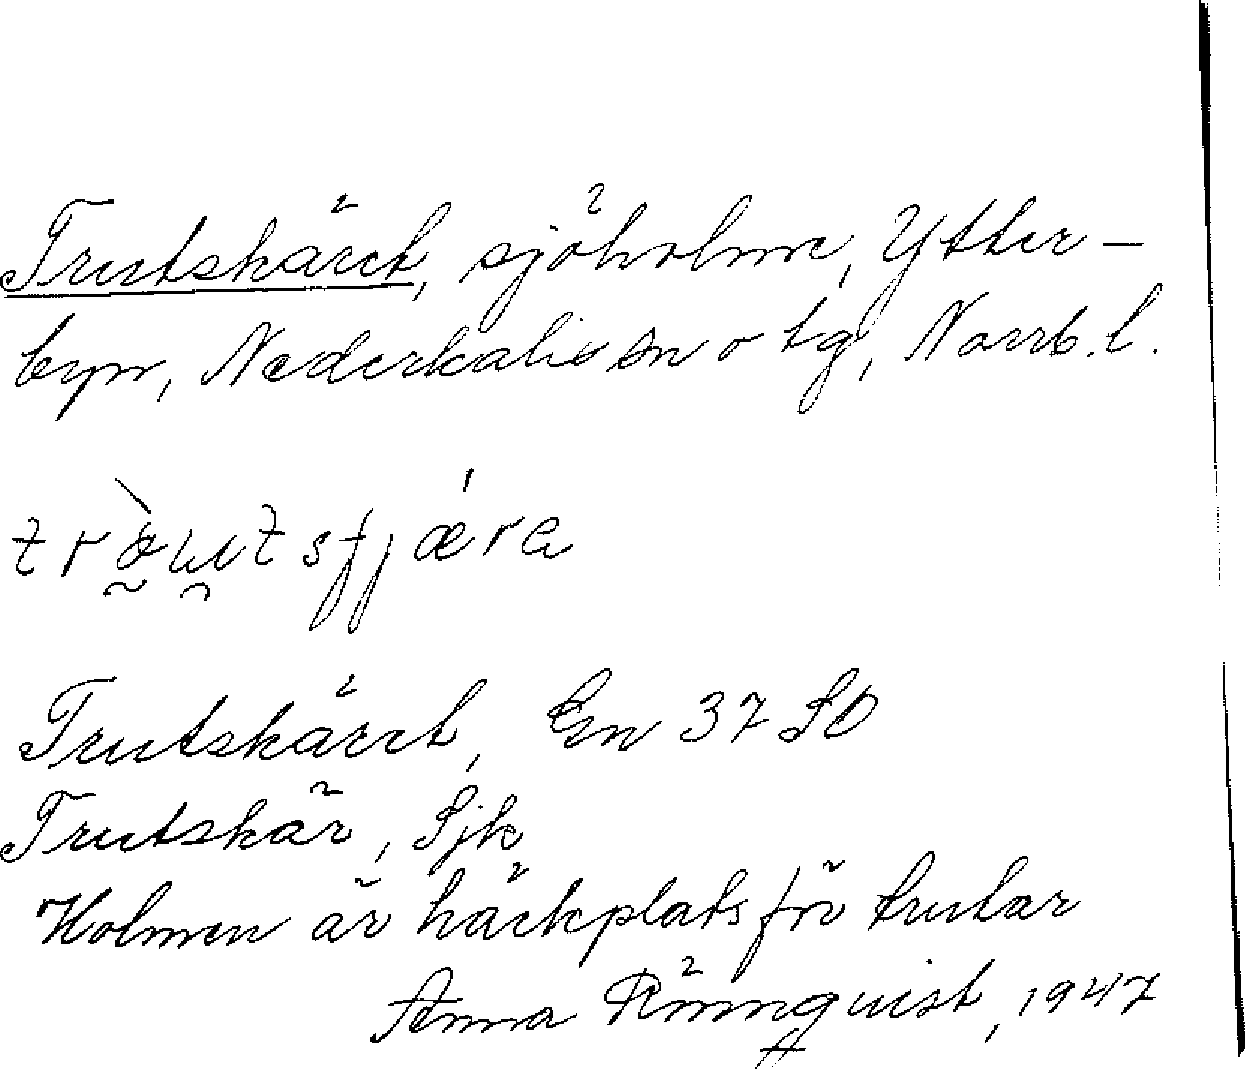 Trutskäret, sjöholme, Ytter-
byn, Nederkalix sn o tg, Norrb. l.
träutsfjǽra
Trutskäret, En 37 SO
Trutskär, Sjk
Holmen är häckplats för trutar
Anna Rönnquist, 1947